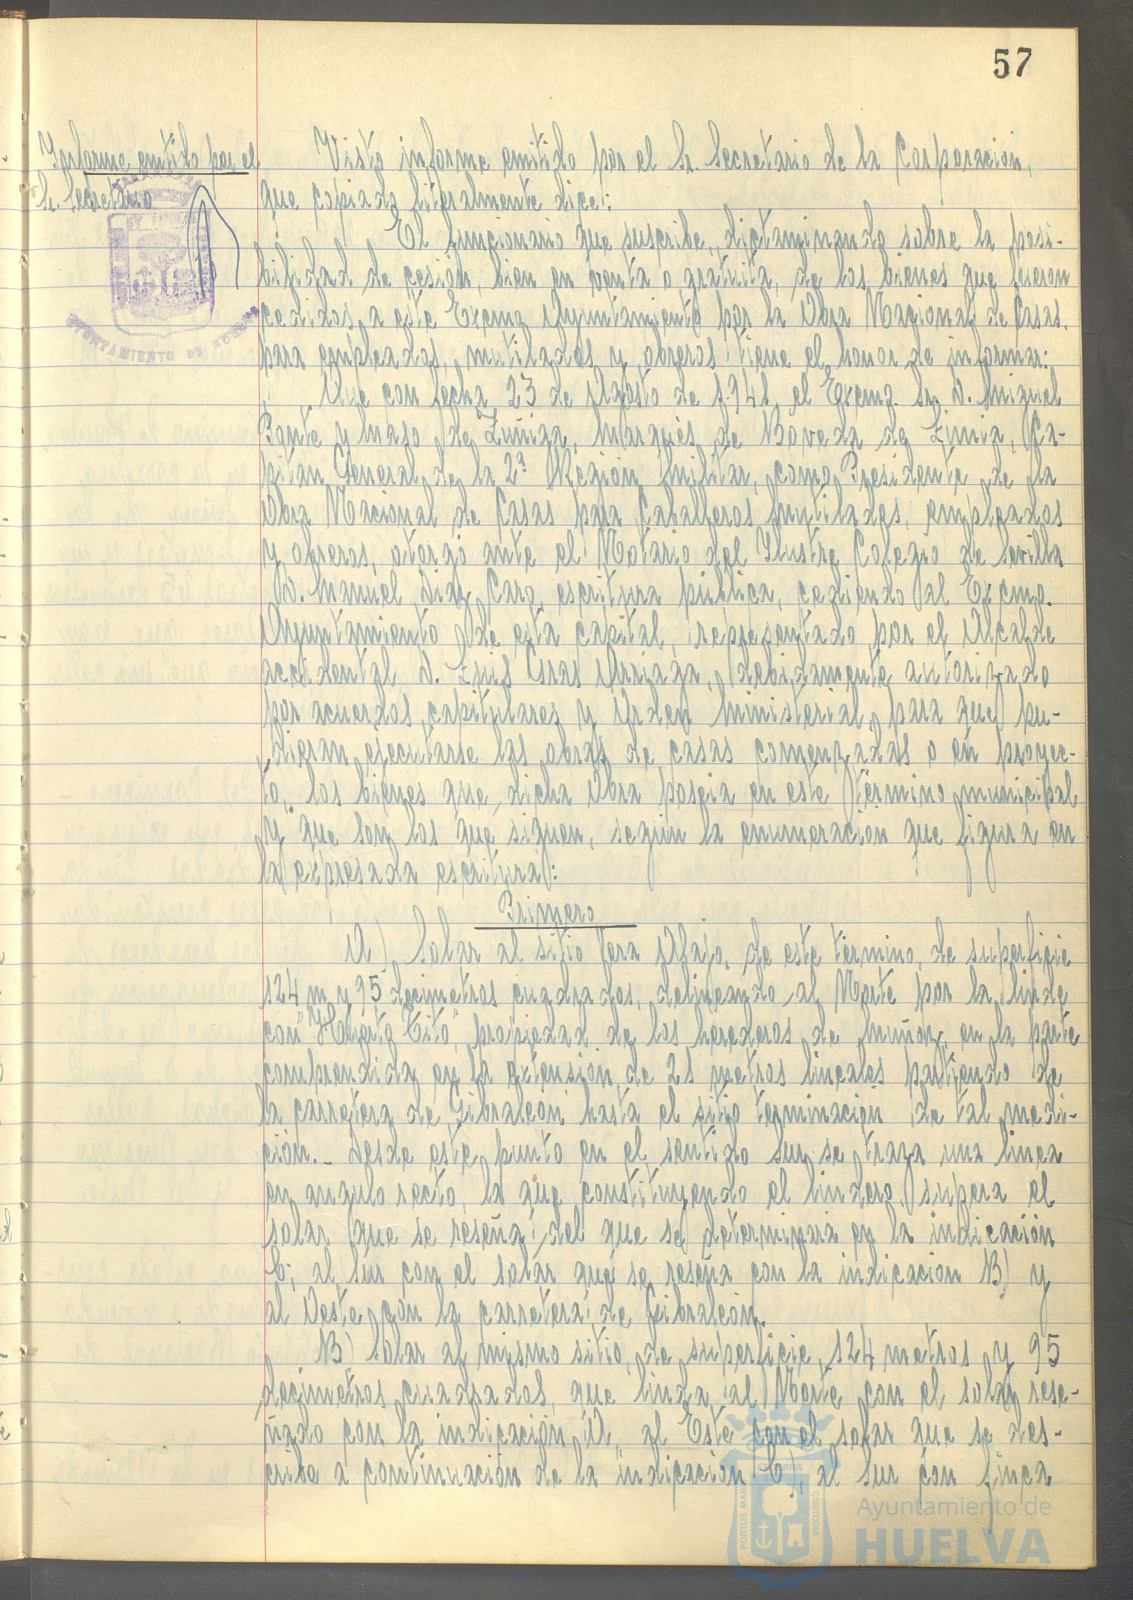 57
Informe emitido por el
Sr. Secretario
AYUNTAMIENTO DE HUELVA
Visto informe emitido por el Sr. Secretario de la Corporación,
que copiado literalmente dice:
El funcionario que suscribe, dictaminando sobre la posi-
bilidad de cesión, bien en venta o gratuita, de los bienes que fueron
cedidos a este Excmo Ayuntamiento por la Obra Nacional de Casas
para empleados, mutilados y obreros tiene el honor de informar:
Que con fecha 23 de Agosto de 1.941, el Excmo. Sr. D. Miguel
Ponte y Manso de Zuñiga, Marqués de Boveda de Limia, Ca-
pitan General de la 2ª Región Militar, como Presidente de la
Obra Nacional de Casas para Caballeros Mutilados, empleados
y obreros, otorgó ante el Notario del Ilustre Colegio de Sevilla
D. Manuel Diaz Caro, escritura pública, cediendo al Excmo.
Ayuntamiento de esta capital, representado por el Alcalde
accidental D. Luis Arriaga, debidamente autorizado
por acuerdos capitulares y Orden Ministerial, para que pu-
dieran ejecutarse las obras de casas comenzadas o en proyec-
to, los bienes que dicha Obra poseia en este término municipal
y que son los que siguen, según la enumeración que figura en
la expresada escritura:
Primero
A) Solar al sitio Vera Abajo, de este término, de superficie
124 m. y 95 decimetros cuadrados, delineando al Norte por la linde
con "Huerto Tito", propiedad de los herederos de Muñoz, en la parte
comprendida en la extensión de 21 metros lineales partiendo de
la carretera de Gibraleón hasta el sitio terminación de tal medi-
ción.- Desde este punto en el sentido Sur se traza una linea
en angulo recto, la que constituyendo el lindero, supera el
solar que se reseña del que se determinará en la indicación
C; al Sur con el solar que se reseña con la indicación B) y
al Oeste con la carretera de Gibraleón.
B) Solar al mismo sitio, de superficie 124 metros y 95
decimetros cuadrados, que linda al Norte con el solar rese-
ñado con la indicación A, al Este con el solar que se des-
cribe a continuación de la indicación C, al Sur con finca
PORTUS MARIS
ET TERRAE
CUSTODIA
Ayuntamiento de
HUELVA